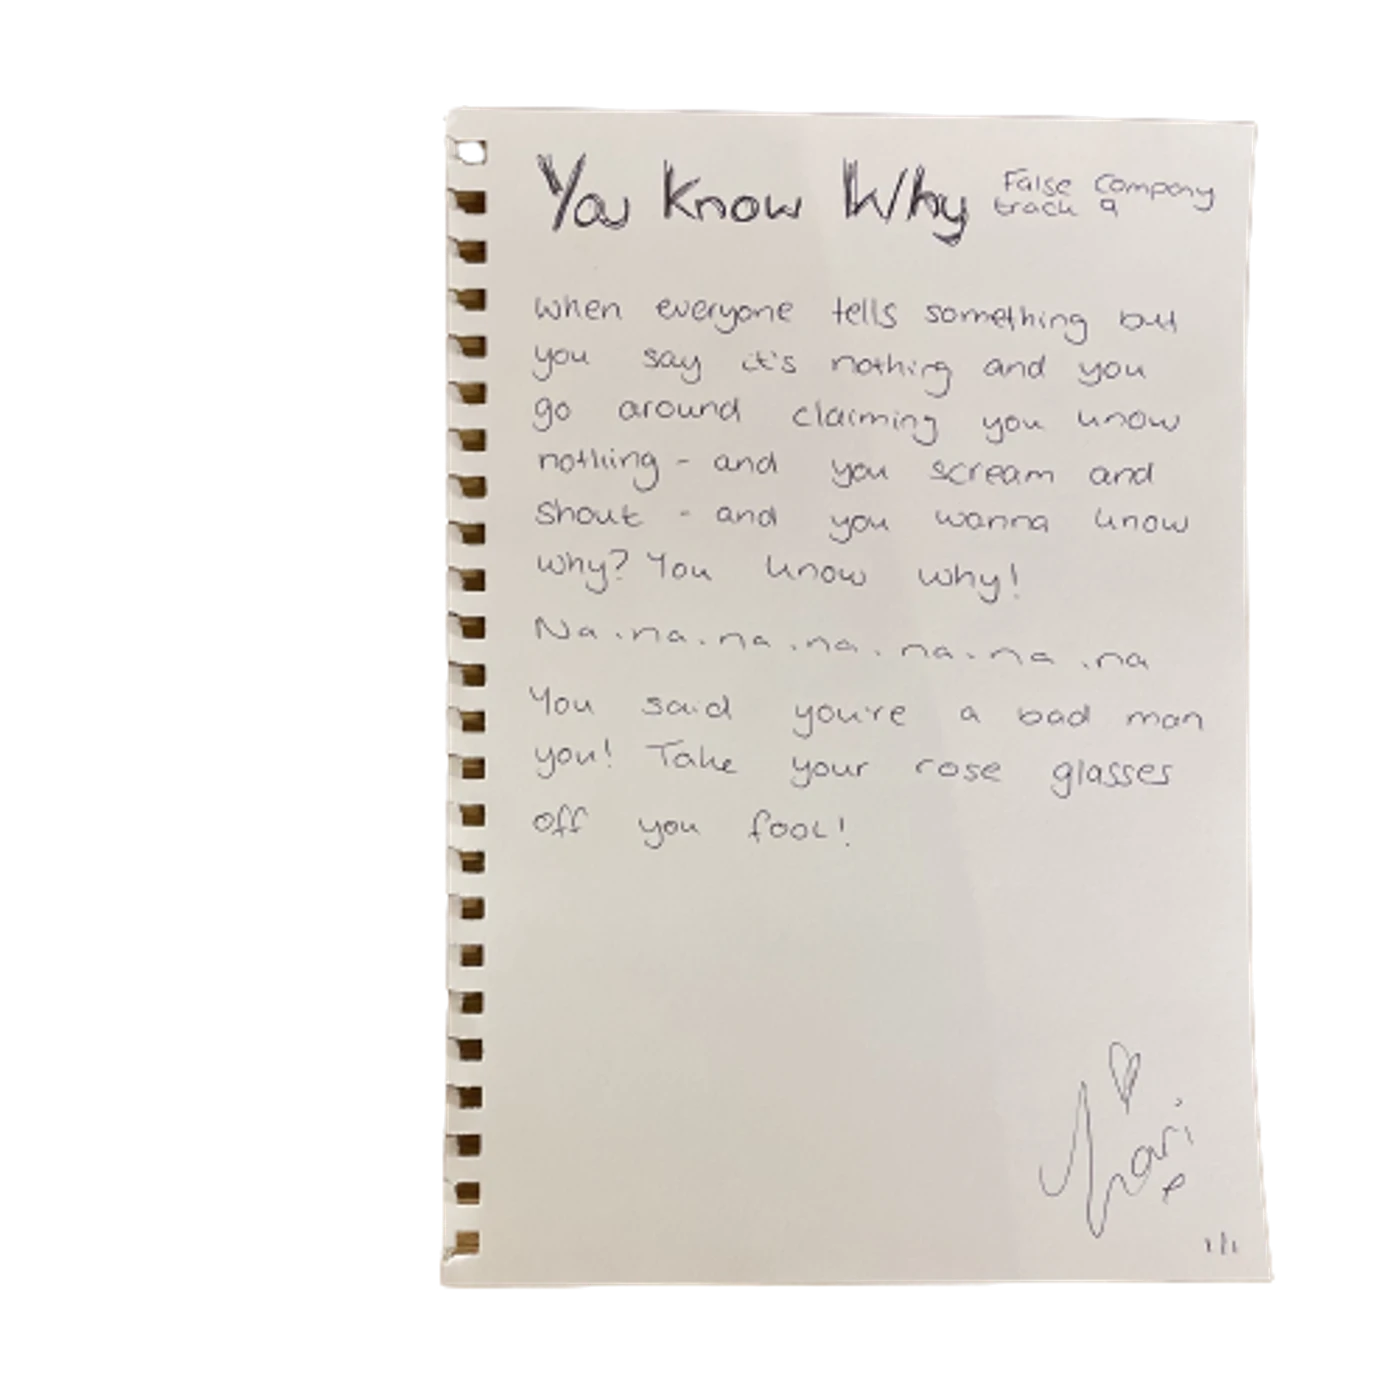 You Know Why
False Company
track 9
when everyone tells something but
you say it's nothing and you
go around claiming you know
nothing - and you scream and
shout - and you wanna know
why? You know why!
Na.na.na.na.na.na.na
You said you're a bad man
you! Take your rose glasses
off you fool!
1/1